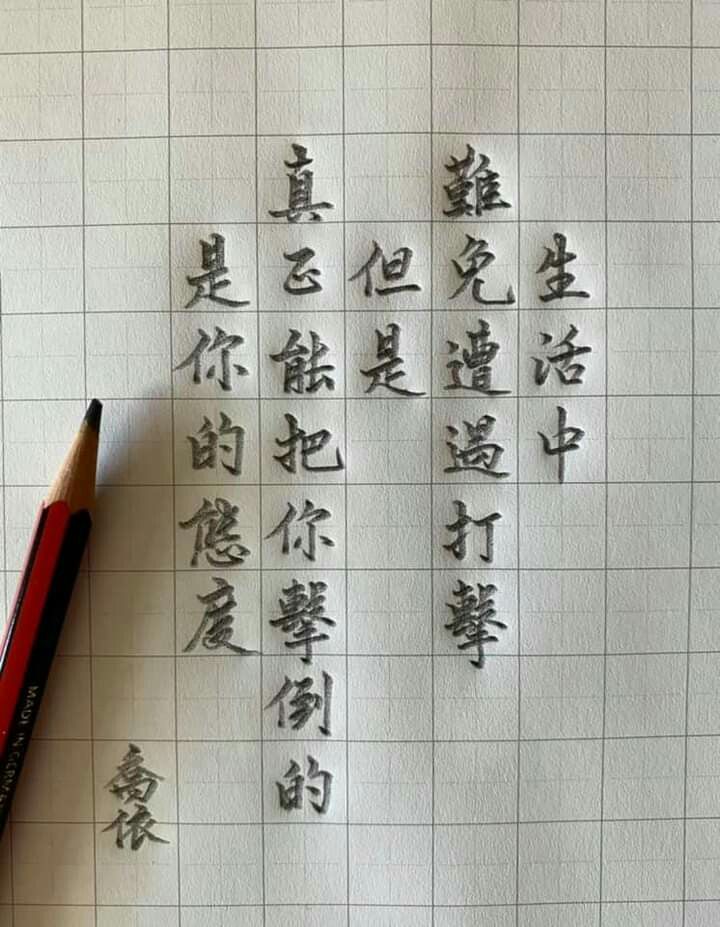 生活中
難免遭遇打擊
但是
真正能把你擊倒的
是你的態度
喬依
MADE IN GERMA